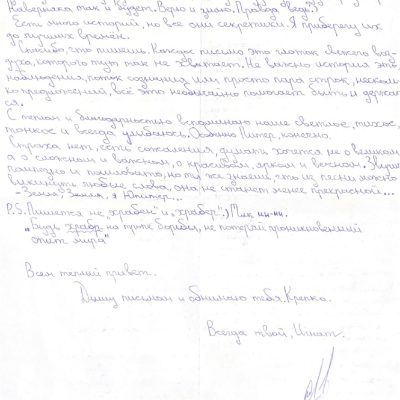 Наверняка так и будет. Верю и знаю. Правда ведь?
Есть много историй, но все они секретики. Я приберегу их
до лучших времён.
Спасибо, что пишешь. Каждое письмо это глоток свежего воз-
духа, которого тут так не хватает. Не важно история это,
наблюдения, поток сознания или просто пара строк, несколь-
ко предложений, всё это необычайно помогает быть и держат-
ся.
С теплом и благодарностью вспоминаю наше светлое, тихое,
тонкое и всегда улыбаюсь. Особенно Питер, конечно.
Страха нет, есть сожаления, думать хочется не о великом
а о сложном и важном, о красивом, ярком и вечном. Звучит
помпезно и , но ты же знаешь, что из песни можно
выкинуть любые слова, она не станет менее прекрасной...
- "Земля? Земля, я Юпитер...
P.S. Пишется не "храбон" и "храбёр" :) Мик ни-ни.
"Будь храбр на пути борьбы, не потеряй проникновенный
этот мира"
Всем теплый привет.
Дышу письмами и обнимаю тебя. Крепко.
Всегда твой,